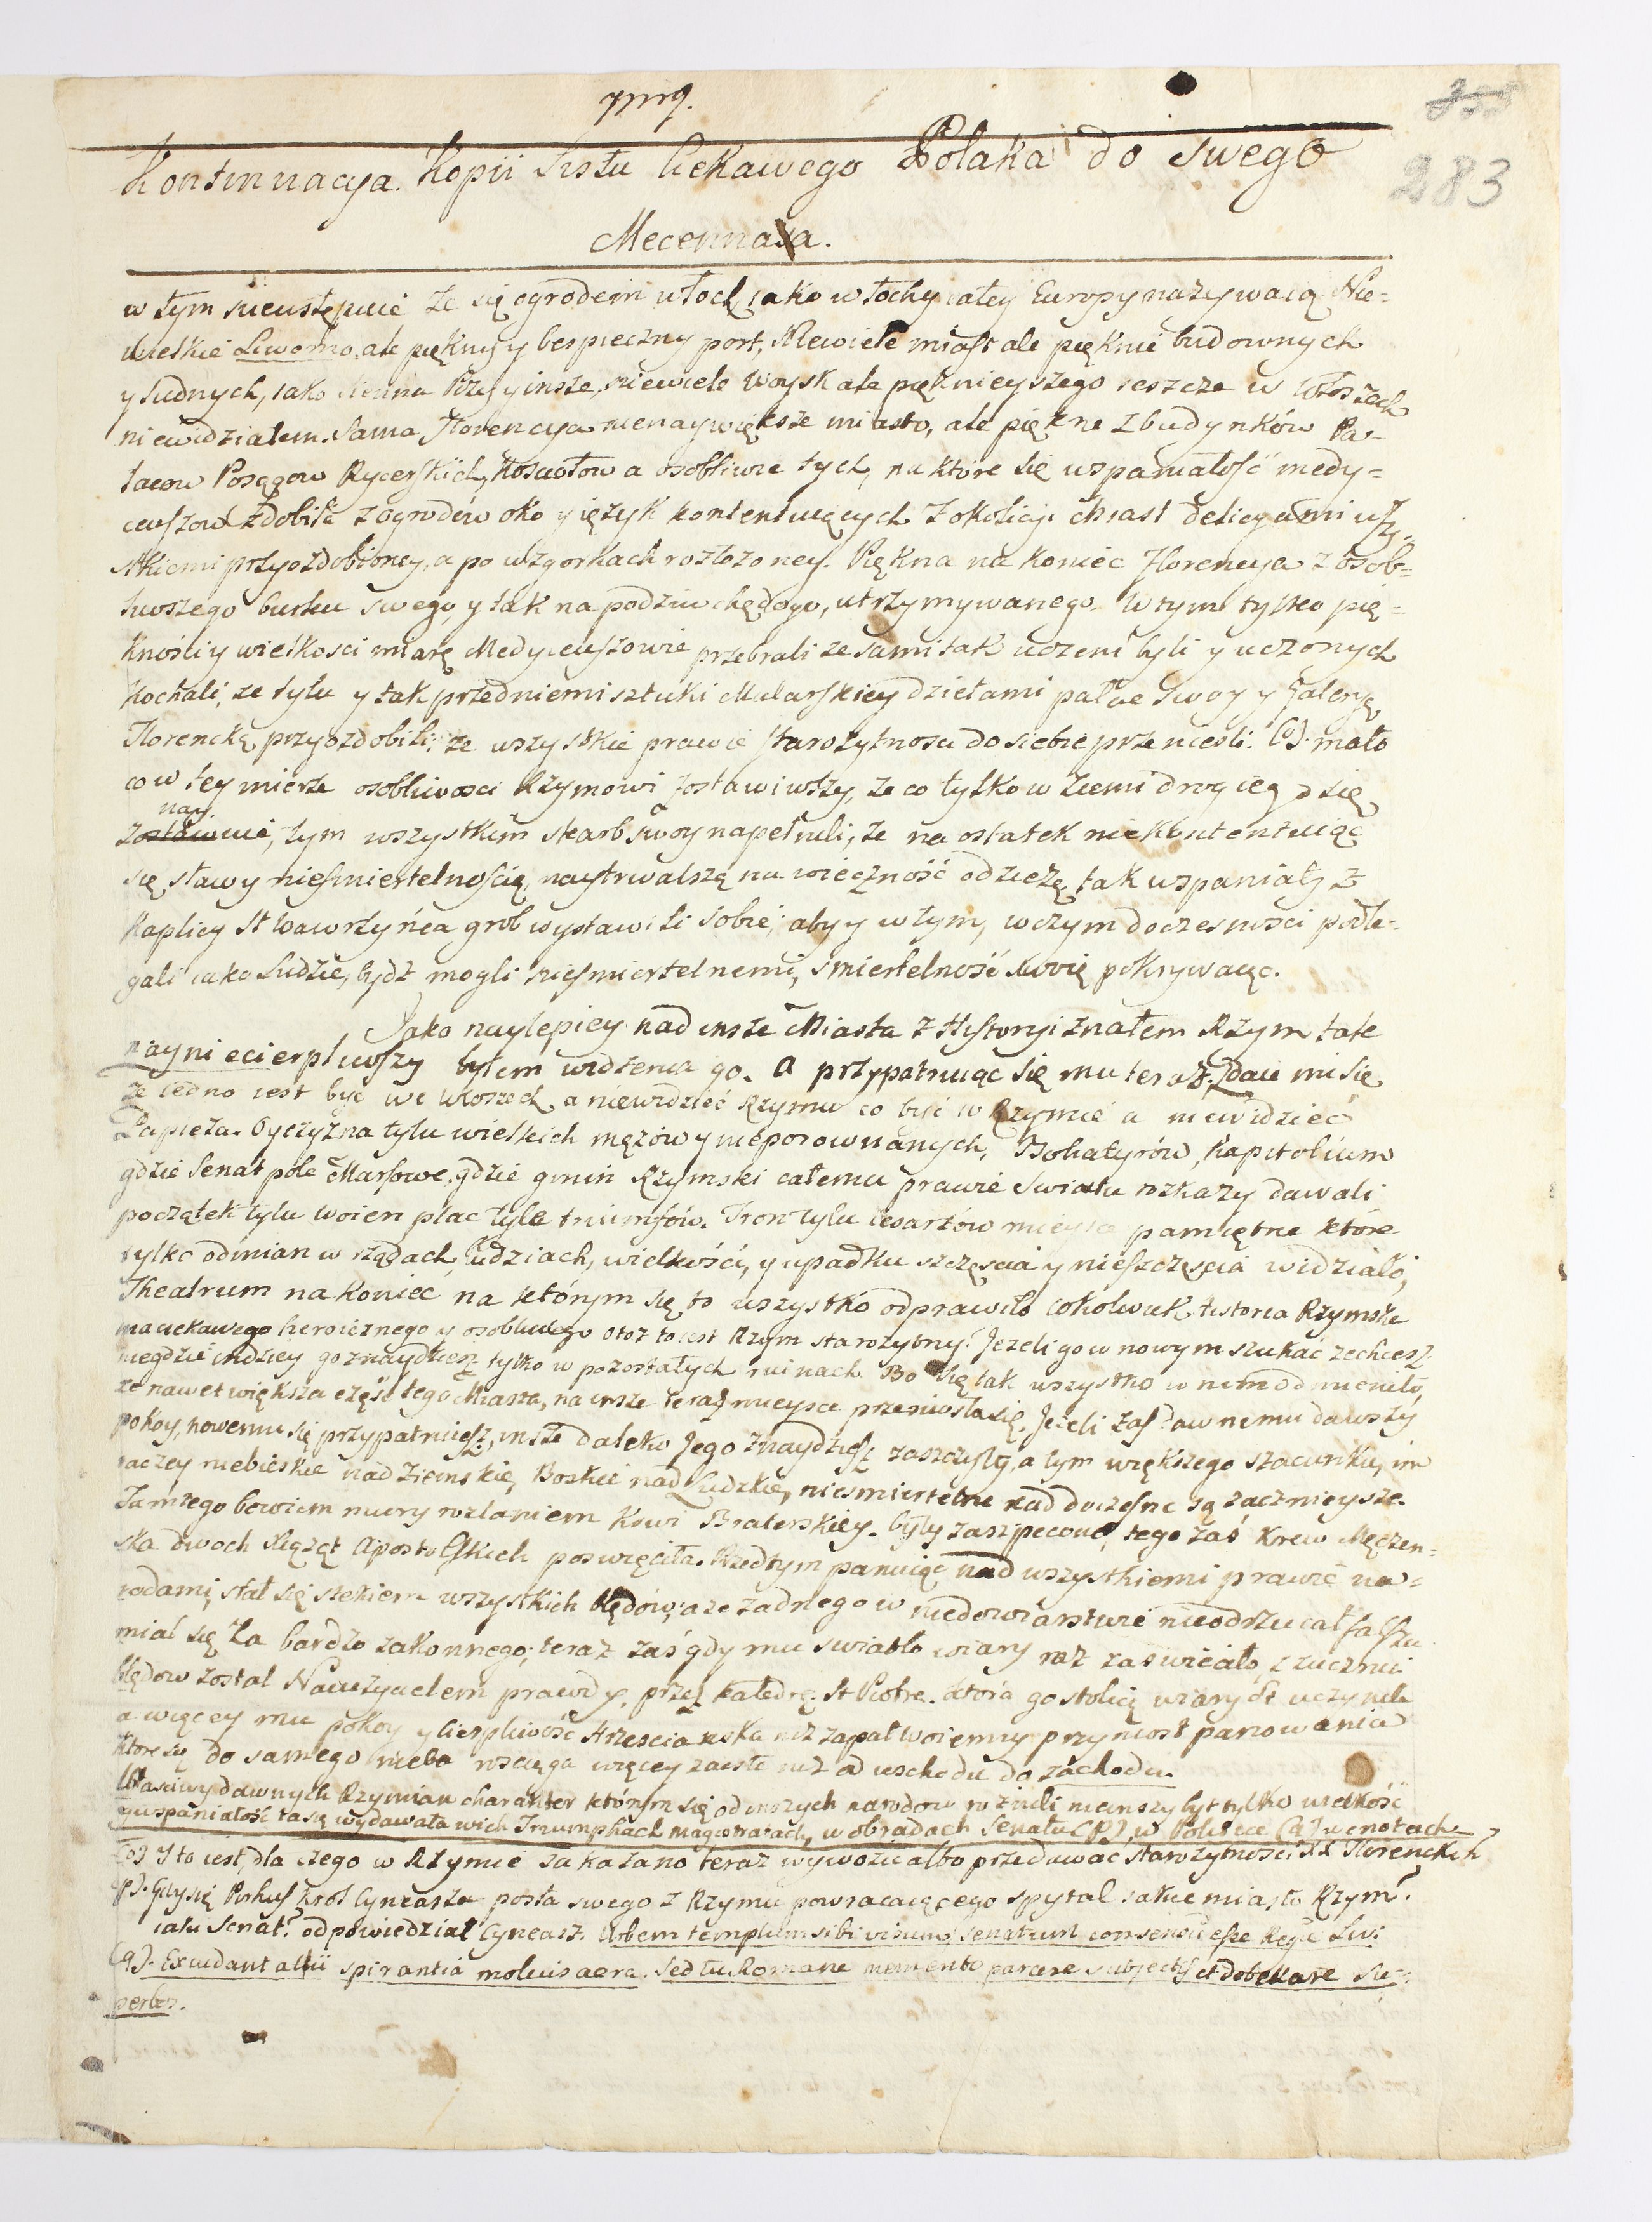 283
Kontinuacya Kopii Listu Ciekawego Polaka do Swego
Mecennasa.
w tym nieustępuie że się ogrodem włoch jako włochy całey Europy nazywaią. Nie=
wielkie Liworno, ale piękny y bespieczny port, Niewiele miast ale pięknie budownych
y ludnych, jako Sienna Piza y insze, niewiele woysk ale pięknieyszego ieszcze w Włoszech
niewidziałem. Sama Florencya nienaywiększe miasto, ale piękne z budynków Pa=
łacow Posągow Rycerskich, Kosciołow a osobliwie tych, na które się wspaniałość medy=
ceuszow zdobiła z ogrodów oko y ięzyk kontentuiących z okolicy, chiast delicyami wszy=
stkiemi przyozdobioney, a po wzgorkach rozłozoney. Piękna na koniec Florencya z osob=
liwszego burku swego, y tak na podziw chędogo, utrzymywanego. W tym tylko pię=
kności y wielkosci miarę Medyceuszowie przebrali ze sami tak uczeni byli y uczonych
kochali, ze tylu y tak przedniemi sztuki Malarskiey dziełami pałac swoy y Galeryę
Florencką przyozdobili, ze wszystkie prawie starożytnosci do siebie przenieśli. (o). mało
co w tey mierze osobliwosci Rzymowi zostawiwszy, ze co tylko w ziemi drogiego się
nay.
zostawuie, tym wszystkim skarb swoy napełnili, że na ostatek niekontentuiąc
się sławy nieśmiertelnością, naytrwalszą na wieczność odzieżę, tak wspaniały z
kaplicy St Wawrzyńca grob wystawili sobie, aby y w tym, w czym doczesności podle=
gali iako Ludzie, bydź mogli nieśmiertelnemi, śmiertelność swoię pokrywaiąc.
Jako naylepiey nad insze Miasta z Historyi znałem Rzym tak
nayniecierpliwszy byłem widzenia go. a przypatruiąc się mu teraz. Zdaie mi się
że iedno iest być we włoszech, a niewidzieć Rzymu co być w Rzymie a niewidzieć
Papieża. Oyczyzna tylu wielkich mężów y nieporownanych, Bohatyrów, Kapitolium
gdzie Senat pole Marsowe, gdzie gmin Rzymski całemu prawie Swiatu rozkazy dawali
początek tylu woien plac tyle tryumfów. Tron tylu Cesarzów mieysce pamiętne które
tylko odmian w rządach, ludziach, wielkości, y upadku szczęscia y nieszczęścia widziało,
Theatrum na koniec na którym się to wszystko odprawiło cokolwiek historia Rzymska
ma ciekawego heroicznego y osobliwego otoż to iest Rzym starożytny. Jezeli go w nowym szukać zechcesz
niegdzie indziey go znaydziesz tylko w pozostałych ruinach. Bo się tak wszystko w nim odmieniło,
że nawet większa część tego Miasta, na insze teraz mieysce przeniosła się. Jeżeli zaś dawnemu dawszy
pokoy, nowemu się przypatruiesz, insze daleko Jego znaydziesz zaszczyty, a tym większego szacunku, im
raczey niebieskie nad ziemskie, Boskie nad Ludzkie, nieśmiertelne nad doczesne są zacznieysze.
Tamtego bowiem mury rozlaniem krwi Braterskiey. były zaszpecone, tego zaś krew Męczen=
ska dwoch Xiążąt Apostolskich poswięciła. Przedtym panuiąc nad wszystkiemi prawie na=
rodami, stał się siekiem wszystkich błędów, a ze żadnego w niedowiarstwie nieodrzucał fałszu
miał się za bardzo zakonnego; teraz zaś gdy mu swiatło wiary raz zaswieciło, z ucznia
błędow został Nauczycielem prawdy, przez katedrę St Piotra. która go stolicą wiary St uczyniła
a więcey mu pokoy y cierpliwość Krzescianska niż zapał woienny przyniosł panowania
które się do samego nieba rosciąga więcey zaiste niż od wschodu do zachodu.
Właściwy dawnych Rzymian charakter którym się od inszych narodow rożnili nieinszy był tylko wielkość
y wspaniałość ta się wydawała w ich Tryumphach Magistratach, w obradach Senatu (p), w Polityce (q) w cnotach
(o) I to iest, dla czego w Rzymie zakazano teraz wywozić albo przedawać starożytności XX Florenckich
(p). Gdy się Pirhus Krol Cyneasza posła swego z Rzymu powracaiącego spytał iakie miasto Rzym?
iaki Senat? odpowiedział Cyneasz. Urbem templum sibi visum, Senatum consensū esse Regū Liv:
(q). Excudant alii spirantia molius aera. Sed tu Romane memento parcere subjectis et debellare su=
perbos.